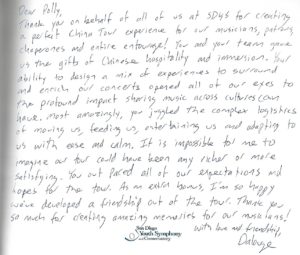 Dear Polly,
Thank you on behalf of all of us at SDYS for creating
a perfect China Tour experience for our musicians, patrons,
chaperones and entire entourage! You and your team gave
us the gifts of Chinese hospitality and immersion. Your
ability to design a mix of experiences to surround
and enrich our concerts opened all of our eyes to
the profound impact sharing music across cultures can
have. Most amazingly, you juggled the complex logistics
of moving us, feeding us, entertaining us and adapting to
us with ease and calm. It is impossible for me to
imagine our tour could have been any richer or more
satisfying. You out paced all of our expectations and
hopes for the tour. As an extra bonus, I'm so happy
we've developed a friendship out of the tour. Thank you
so much for creating amazing memories for our musicians!
San Diego
Youth Symphony
and Conservatory
with love and friendship,
Dalouge